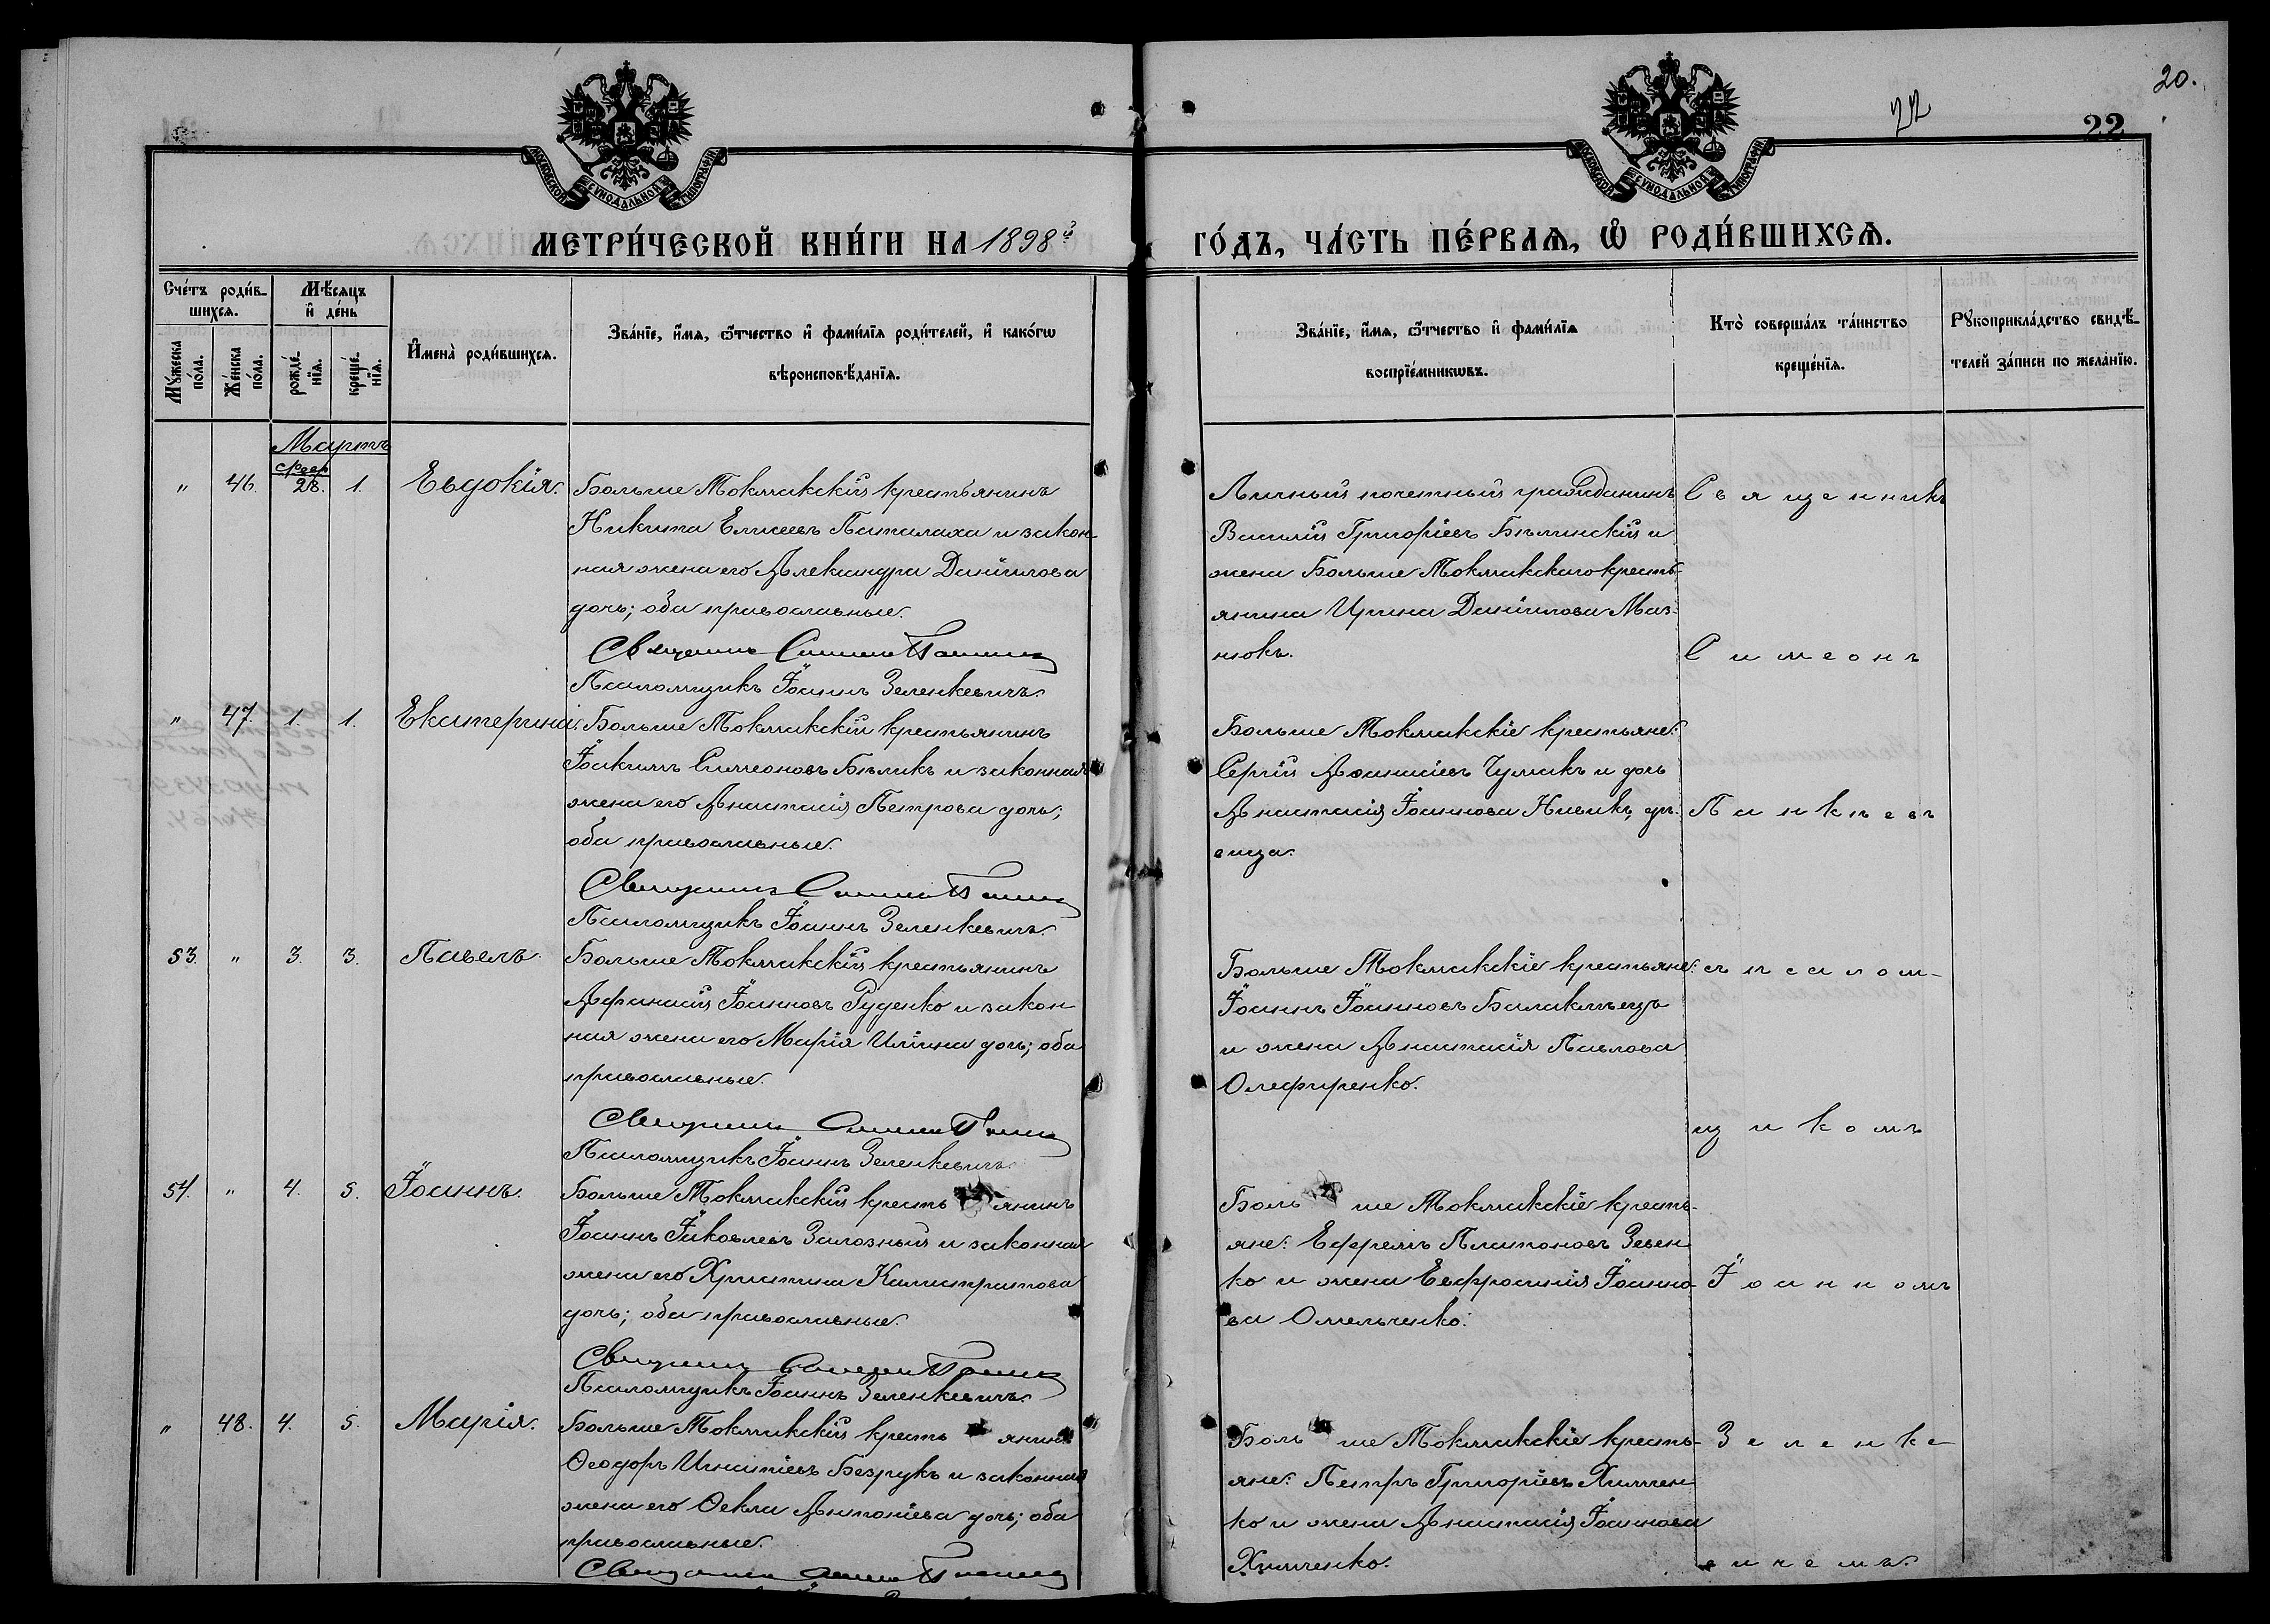 20.
22
22
МОСКОВСКОЙ СѴНОДАЛЬНОЙ ТИПОГРАФІИ
МОСКОВСКОЙ СѴНОДАЛЬНОЙ ТИПОГРАФІИ
МЕТРИ́ЧЕСКОЙ КНИ́ГИ НА 1898й ГО́ДЪ, ЧА́СТЬ ПЕ́РВАѦ, Ѽ РОДИ́ВШИХСѦ.
Сче́тъ роди́в-
шихсѧ.
Мѣ́сѧцъ
и҆ де́нь
Мꙋ́жеска
по́ла.
Же́нска
по́ла.
рожде́-
нїѧ.
креще́-
нїѧ.
И҆мена̀ роди́вшихсѧ.
Зва́нїе, и҆́мѧ, ѻ҆́тчество и҆ фами́лїѧ роди́телей, и҆ како́гѡ
вѣроисповѣ́данїѧ.
Зва́нїе, и҆́мѧ, ѻ҆́тчество и҆ фами́лїѧ
воспрїе́мникѡвъ.
Кто̀ соверша́лъ та́инство
креще́нїѧ.
Рꙋкоприкла́дство свидѣ́-
телей за́писи по жела́нїю.
Мартъ
" 46. февр 28. 1. Евдокія.
Больше Токмакскій крестьянинъ
Никита Елисеевъ Паталаха и закон-
ная жена его Александра Даніилова
дочь; оба православные.
Священникъ Симеонъ
Псаломщикъ Іоаннъ Зеленкевичъ.
Личный почетный гражданинъ
Василій Григоріевъ Бѣлинскій и
жена Больше Токмакскаго кресть-
янина Ирина Даніилова Маз-
нюкъ.
Священникъ
Симеонъ
" 47. 1. 1. Екатерина.
Больше Токмакскій крестьянинъ
Іоакимъ Симеоновъ Бѣликъ и законная
жена его Анастасія Петрова дочь;
оба православные.
Священникъ Симеонъ
Псаломщикъ Іоаннъ Зеленкевичъ.
Больше Токмакскіе крестьяне:
Сергій Аѳанасіевъ Чумакъ и дочь
Анастасія Іоаннова Новикъ, дѣ-
вица.
Панкѣевъ
53. " 3. 3. Павелъ.
Больше Токмакскій крестьянинъ
Афанасій Іоанновъ Руденко и закон
ная жена его Марія Иліина дочь; оба
православные.
Священникъ Симеонъ
Псаломщикъ Іоаннъ Зеленкевичъ.
Больше Токмакскіе крестьяне:
Іоаннъ Іоанновъ Балаклѣецъ
и жена Анастасія Павлова
Олефиренко.
съ псалом-
щикомъ
54. " 4. 5. Іоаннъ.
Больше Токмакскій кресть янинъ
Іоаннъ Іаковлевъ Залозный и законная
жена его Христина Калистратова
дочь; оба православные.
Священникъ Симеонъ
Псаломщикъ Іоаннъ Зеленкевичъ.
Боль ше Токмакскіе кресть-
яне: Ефремъ Платоновъ Зевен
ко и жена Евфросинія Іоанно-
ва Омельченко.
Іоанномъ
" 48. 4. 5. Марія.
Больше Токмакскій кресть янинъ
Ѳеодоръ Игнатіевъ Безрукъ и законная
жена его Ѳекла Антоніева дочь; оба
православные.
Священникъ Симеонъ
Боль ше Токмакскіе кресть-
яне: Петръ Григоріевъ Химчен
ко и жена Анастасія Іоаннова
Химченко.
Зеленке-
вичемъ.